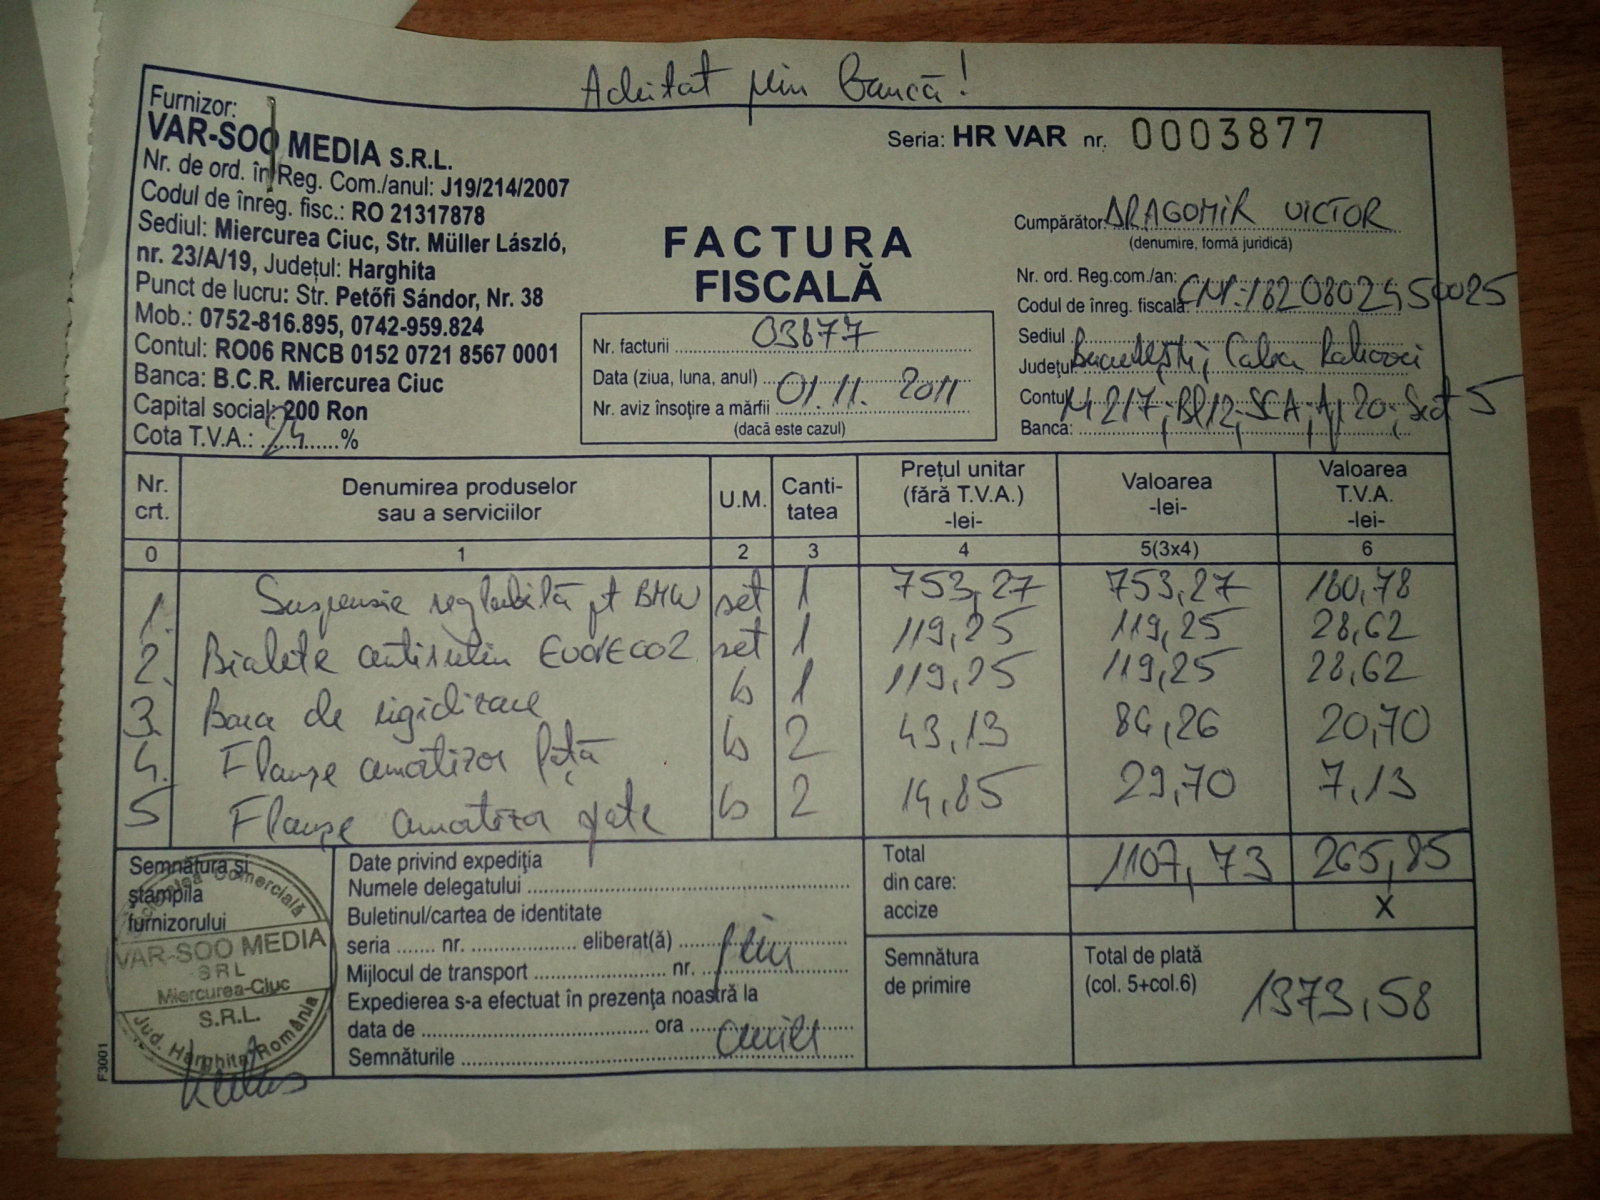 Achitat prin bancă!
Furnizor:
VAR-SOO MEDIA S.R.L.
Nr. de ord. în Reg. Com./anul: J19/214/2007
Codul de înreg. fisc.: RO 21317878
Sediul: Miercurea Ciuc, Str. Müller László,
nr. 23/A/19, Județul: Harghita
Punct de lucru: Str. Petőfi Sándor, Nr. 38
Mob.: 0752-816.895, 0742-959.824
Contul: RO06 RNCB 0152 0721 8567 0001
Banca: B.C.R. Miercurea Ciuc
Capital social: 200 Ron
Cota T.V.A.: 24 %
FACTURA
FISCALĂ
Nr. facturii 03877
Data (ziua, luna, anul) 01.11.2011
Nr. aviz însoțire a mărfii
(dacă este cazul)
Seria: HR VAR nr. 0003877
Cumpărător: DRAGOMIR VICTOR
(denumire, formă juridică)
Nr. ord. Reg.com./an:
Codul de înreg. fiscală: CNP:1820802450025
Sediul
Județul București, Calea Rahovei
Contul 217, Bl 12, SCA, Ap 20, Sect 5
Banca:
Nr. crt. Denumirea produselor sau a serviciilor U.M. Cantitatea Prețul unitar (fără T.V.A.) -lei- Valoarea -lei- Valoarea T.V.A. -lei-
0 1 2 3 4 5(3x4) 6
1. Suspensie reglabilă pt BMW set 1 753,27 753,27 180,78
2. Bielete antiruliu set 1 119,25 119,25 28,62
3. Bara de rigidizare b 1 119,25 119,25 28,62
4. Flanșe amortizor față b 2 43,13 86,26 20,70
5 Flanșe amortizor spate b 2 14,85 29,70 7,13
Semnătura și
ștampila
furnizorului
Societatea Comercială
VAR-SOO MEDIA
SRL
Miercurea-Ciuc
S.R.L.
Jud. Harghita România
F3001
Date privind expediția
Numele delegatului
Buletinul/cartea de identitate
seria nr. eliberat(ă) prin
Mijlocul de transport nr.
Expedierea s-a efectuat în prezența noastră la
data de ora
Semnăturile
Total 1107,73 265,85
din care:
accize X
Semnătura
de primire
Total de plată
(col. 5+col.6)
1373,58